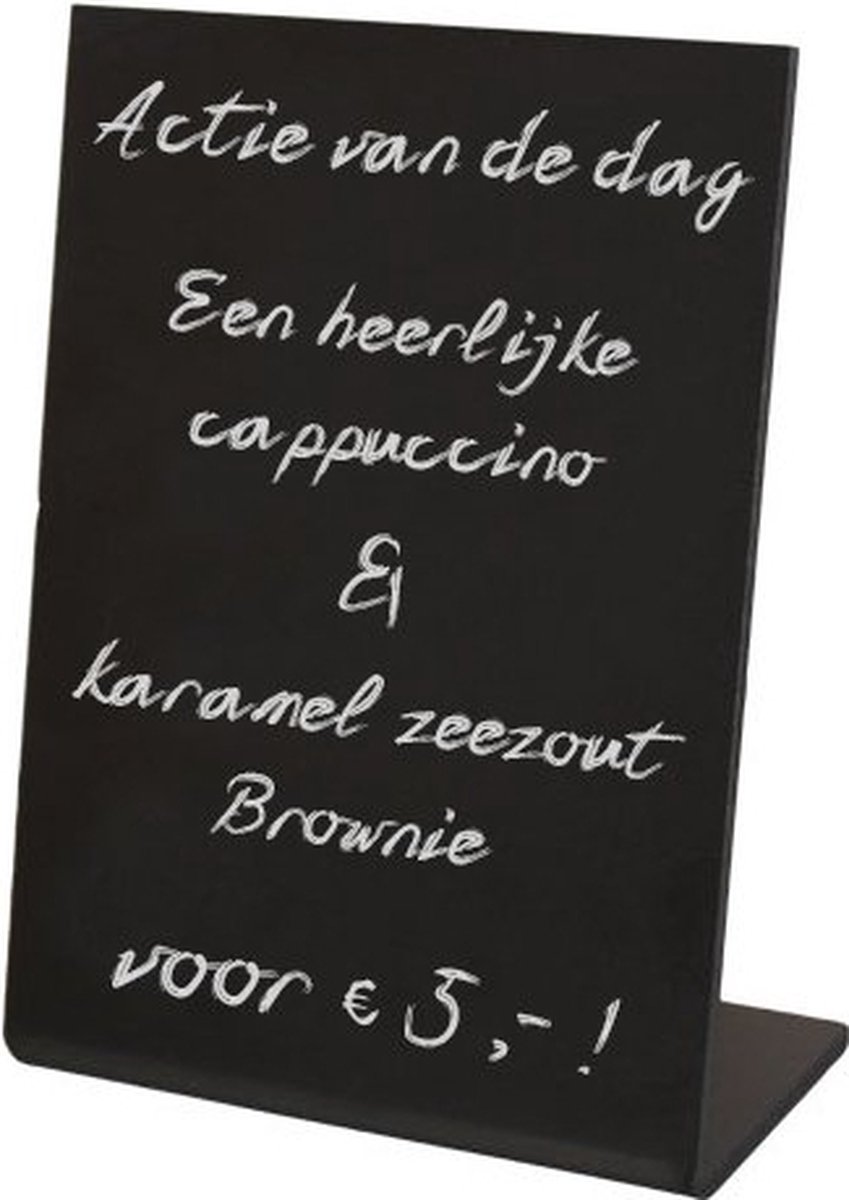 Actie van de dag
Een heerlijke
cappuccino
&
karamel zeezout
Brownie
voor € 5,- !